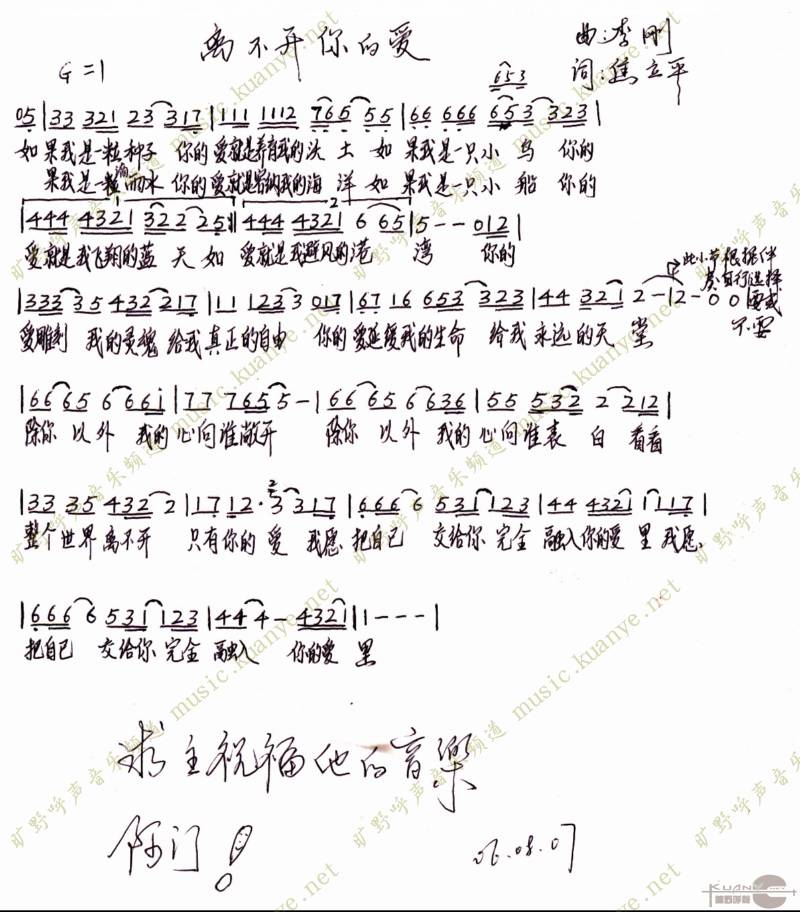 离不开你的爱
曲:李刚
G=1
词:焦立平
653
05|33 321 23 317|111 1112 765 55|66 666 653 323|
如果我是一粒种子 你的爱就是养育我的沃土 如果我是一只小鸟 你的
果我是一滴雨水 你的爱就是容纳我的海洋 如果我是一只小船 你的
1 2
|444 4321 322 225:||444 4321 6 65|5--012|
爱就是我飞翔的蓝天 如 爱就是我避风的港湾 你的
此小节根据伴奏自行选择要或不要
|333 35 432 217|11 1233 017|67 16 653 323|44 321 2-|2-00|
爱雕刻 我的灵魂 给我真正的自由 你的爱延续我的生命 给我永远的天堂
|66 65 6 661|77 765 5-|66 65 6 636|55 532 2 212|
除你以外 我的心向谁敞开 除你以外 我的心向谁表白 看看
|33 35 432 2|17 12·3 317|666 6 531 123|44 4321 1 117|
整个世界离不开 只有你的爱 我愿把自己 交给你 完全融入你的爱里 我愿
|666 6 531 123|44 4- 4321||1---|
把自己 交给你 完全融入 你的爱里
求主祝福他的音樂
阿门!
06.08.07
旷野呼声音乐频道 music.kuanye.net
KUANYE
旷野呼声